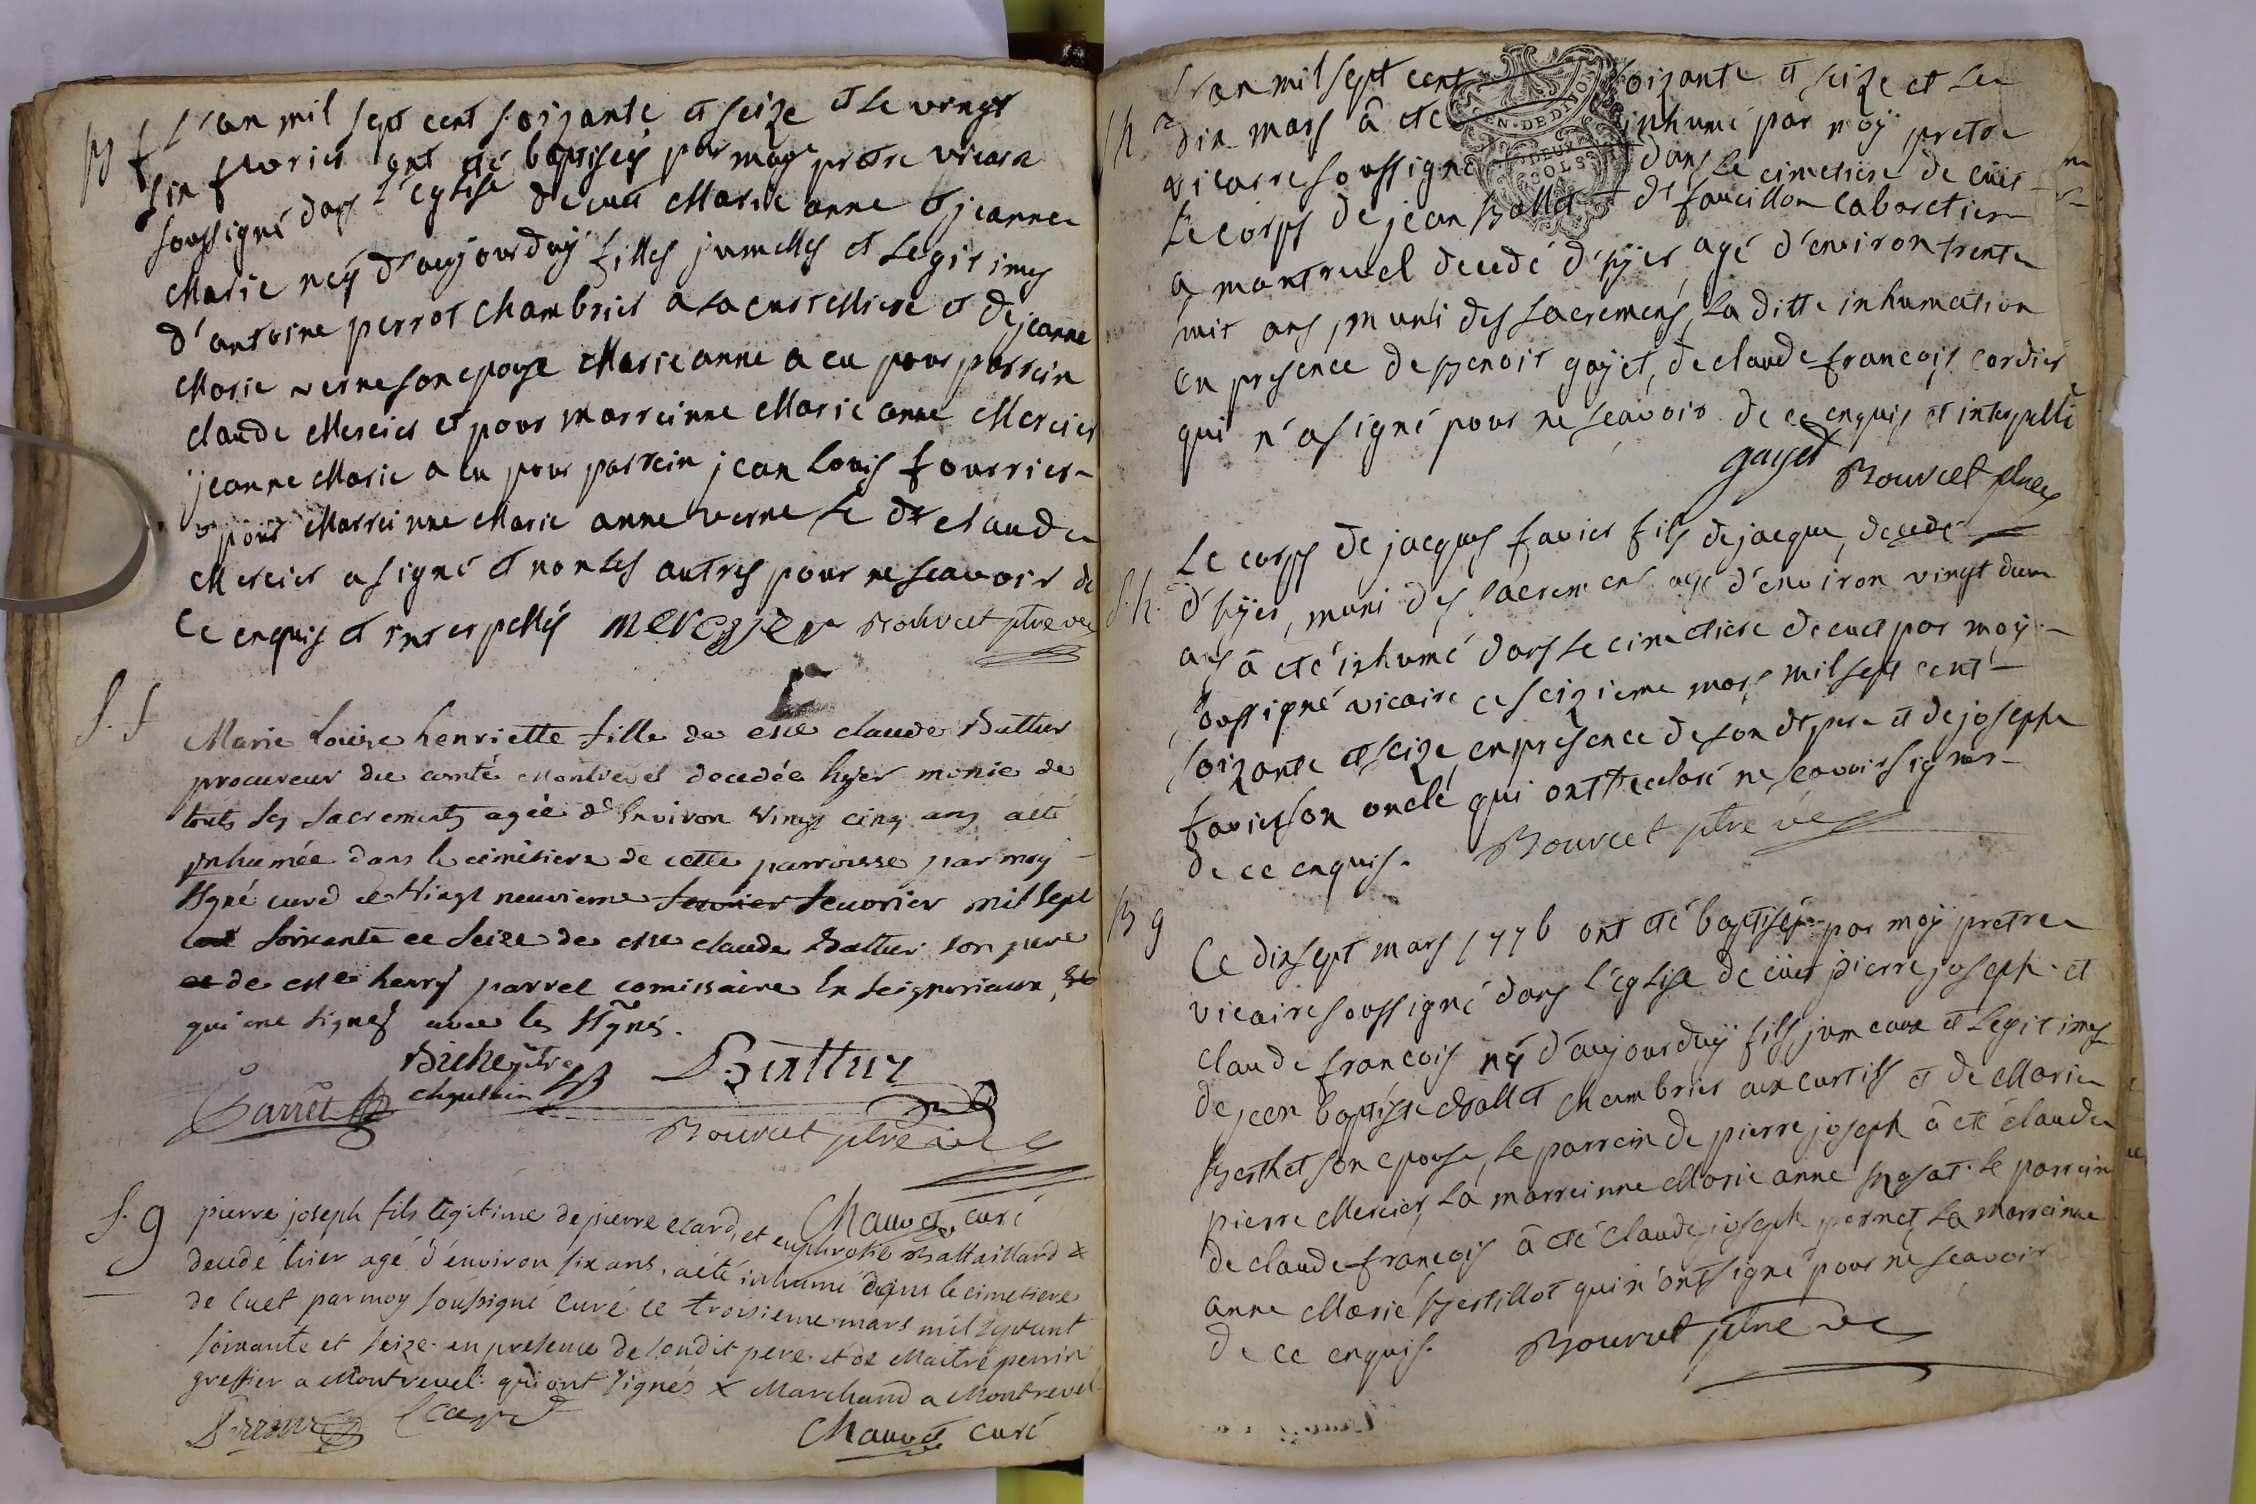 B f L'an mil sept cent soizante et seize et le vingt
six fevrier ont eté baptisés par moy pretre vicaire
soussigné dans l'eglise de cuet Marie anne et jeanne
Marie neés d'aujourduÿ filles jumelles et Legitimes
d'antoine perrot chambrier a la curtelliere et de jeanne
Marie verne son epouse Marie anne a eu pour parrein
claude Mercier et pour marreinne Marie anne Mercier
jeanne Marie a eu pour parrein jean louis fourrier
et pour Marreinne Marie anne verne le dt claude
Mercier a signé et non les autres pour ne scavoir de
ce enquis et interpellés mercyer Bourcet ptre vic
S. f Marie Louise henriette fille de me claude Buttur
procureur du comté Montrevel decedée hyer munie de
touts les sacrements agée d'environ vingt cinq ans aété
inhumée dans le cimetiere de cette parroisse par moy
sgné curé ce vingt neuvieme fevrier mil sept
cent soixante et seize de me claude Buttur son pere
et de me henry parret comissaire en seigneriaux,
qui ont signés avec les sgnés.
Parret Buchez ptre Buttur
chapelain
Bourcet ptre vic
Chauvet curé
S. g pierre joseph fils legitime de pierre card, et euphrosie Battaillard x
decedé hier agé d'environ six ans, aété inhumé dans le cimetiere
de Cuet par moy soussigné Curé ce troisieme mars mil septcent
soixante et seize en presence de sondit pere et de Maitre perrin
greffier a Montrevel qui ont signés x Marchand a Montrevel
Perrin Card
Chauvet curé
S h L'an mil sept cent soizante et seize et le
EN · DE DIJON
DEUX SOLS
dix mars â eté inhumé par moÿ pretre
vicaire soussigné dans le cimetiere de cuet
Le corps de jean Ballet dt faucillon cabaretier
a montrevel decedé d'hÿer, agé d'environ trente
huit ans, muni des sacremens, la ditte inhumation
en presence de Benoit gayet, de claude francois cordier
qui n'a signé pour ne scavoir de ce enquis et interpellé
gayet Bourcet ptre vic
S. h. Le corps de jacques favier fils de jacque, decedé
d'hÿer, muni des sacremens agé d'environ vingt deux
ans â eté inhumé dans le cimetiere de cuet par moÿ
soussigné vicaire ce seizieme mars mil sept cent
soizante et seize, en presence de son dt pere et de joseph
favier son oncle qui ont declaré ne scavoir signer
de ce enquis. Bourcet ptre vic
B g Ce dixsept mars 1776 ont eté baptisés par moÿ pretre
vicaire soussigné dans l'eglise de cüet pierre joseph et
claude francois nés d'aujourduÿ fils jumeaux et Legitimes
de jean baptiste Ballet chambrier aux curtils et de Marie
Berthet son epouse, le parrein de pierre joseph â eté claude
pierre Mercier, La marreinne Marie anne Morat. le parrein
de claude francois â eté claude joseph pernet, La marreinne
anne Marie Bertillot qui n'ont signé pour ne scavoir
de ce enquis. Bourcet ptre vic